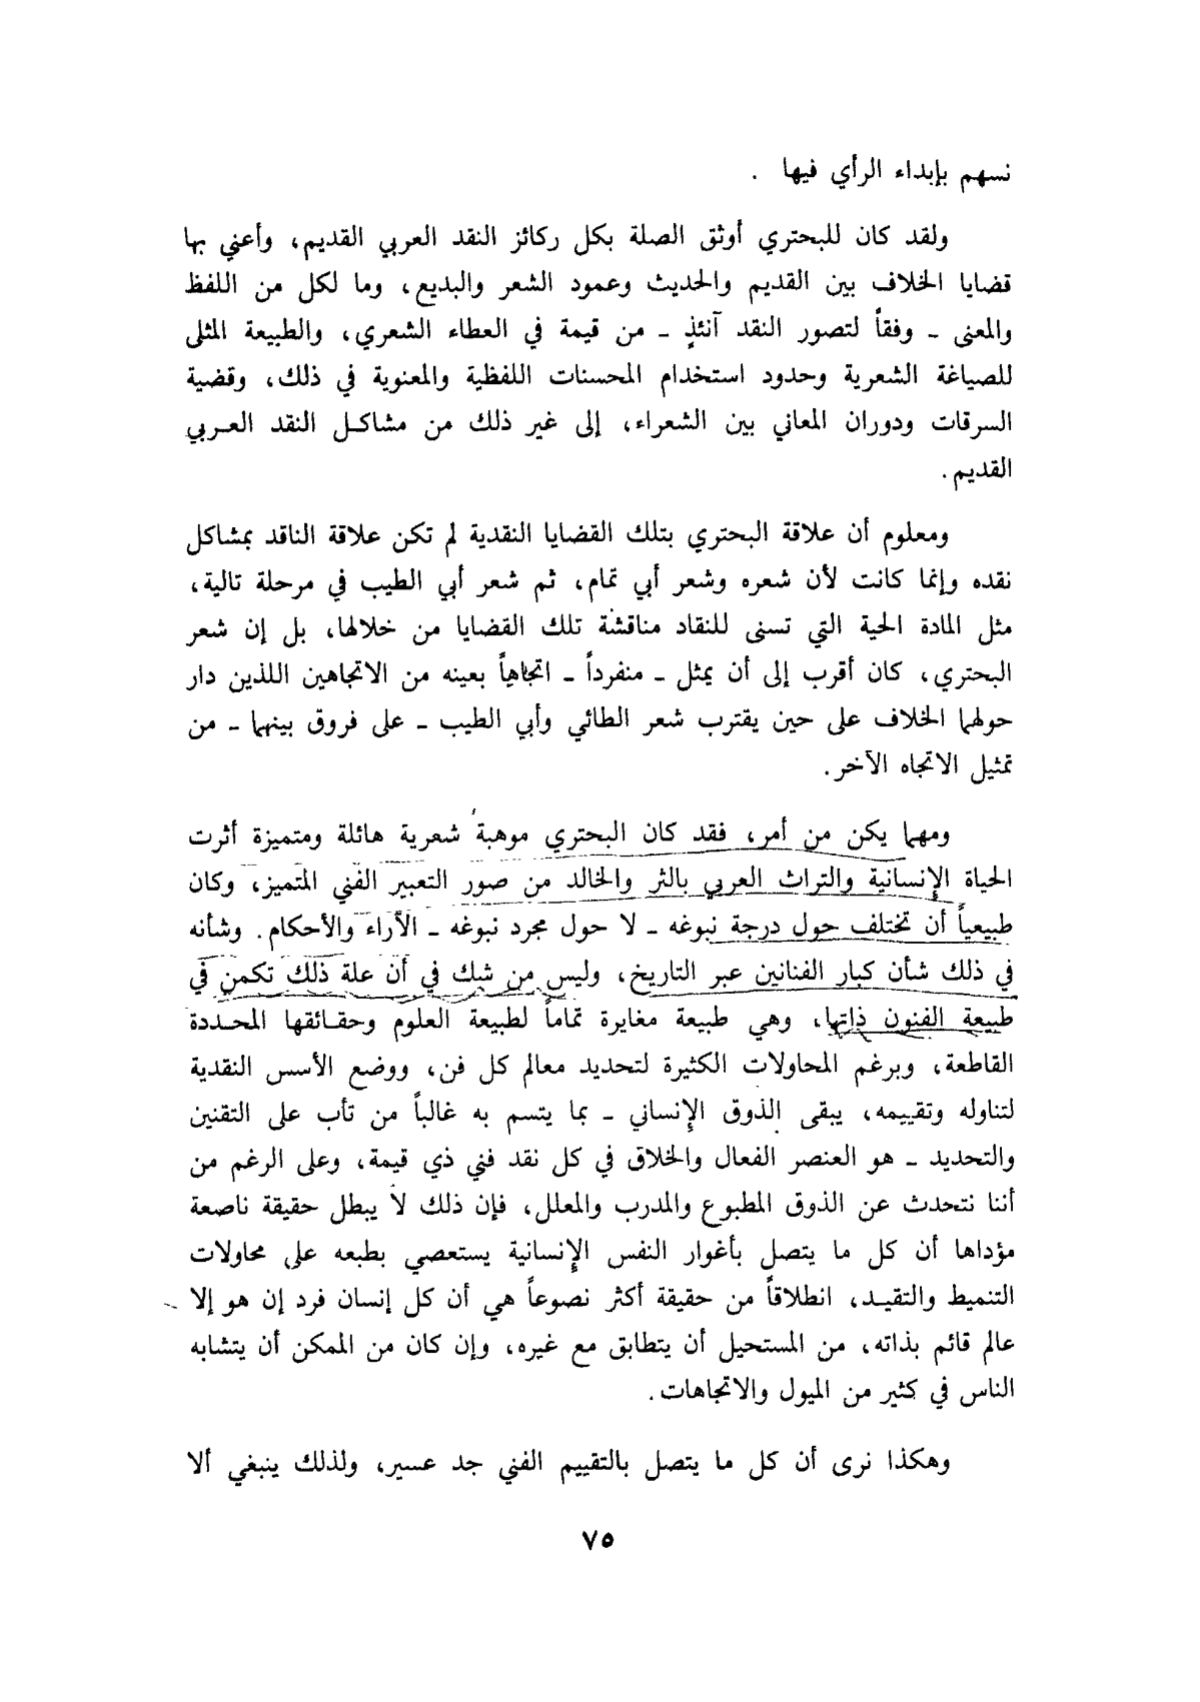 نسهم بإبداء الرأي فيها .
ولقد كان للبحتري أوثق الصلة بكل ركائز النقد العربي القديم، وأعني بها
قضايا الخلاف بين القديم والحديث وعمود الشعر والبديع، وما لكل من اللفظ
والمعنى - وفقاً لتصور النقد آنئذٍ - من قيمة في العطاء الشعري، والطبيعة المثلى
للصياغة الشعرية وحدود استخدام المحسنات اللفظية والمعنوية في ذلك، وقضية
السرقات ودوران المعاني بين الشعراء، إلى غير ذلك من مشاكل النقد العربي
القديم.
ومعلوم أن علاقة البحتري بتلك القضايا النقدية لم تكن علاقة الناقد بمشاكل
نقده وإنما كانت لأن شعره وشعر أبي تمام، ثم شعر أبي الطيب في مرحلة تالية،
مثل المادة الحية التي تسنى للنقاد مناقشة تلك القضايا من خلالها، بل إن شعر
البحتري، كان أقرب إلى أن يمثل - منفرداً - اتجاهاً بعينه من الاتجاهين اللذين دار
حولهما الخلاف على حين يقترب شعر الطائي وأبي الطيب - على فروق بينهما - من
تمثيل الاتجاه الآخر.
ومهما يكن من أمر، فقد كان البحتري موهبة شعرية هائلة ومتميزة أثرت
الحياة الإنسانية والتراث العربي بالثر والخالد من صور التعبير الفني المتميز، وكان
طبيعياً أن تختلف حول درجة نبوغه - لا حول مجرد نبوغه - الآراء والأحكام. وشأنه
في ذلك شأن كبار الفنانين عبر التاريخ، وليس من شك في أن علة ذلك تكمن في
طبيعة الفنون ذاتها، وهي طبيعة مغايرة تماماً لطبيعة العلوم وحقائقها المحددة
القاطعة، وبرغم المحاولات الكثيرة لتحديد معالم كل فن، ووضع الأسس النقدية
لتناوله وتقييمه، يبقى الذوق الإنساني - بما يتسم به غالباً من تأب على التقنين
والتحديد - هو العنصر الفعال والخلاق في كل نقد فني ذي قيمة، وعلى الرغم من
أننا نتحدث عن الذوق المطبوع والمدرب والمعلل، فإن ذلك لا يبطل حقيقة ناصعة
مؤداها أن كل ما يتصل بأغوار النفس الإنسانية يستعصي بطبعه على محاولات
التنميط والتقيد، انطلاقاً من حقيقة أكثر نصوعاً هي أن كل إنسان فرد إن هو إلا
عالم قائم بذاته، من المستحيل أن يتطابق مع غيره، وإن كان من الممكن أن يتشابه
الناس في كثير من الميول والاتجاهات.
وهكذا نرى أن كل ما يتصل بالتقييم الفني جد عسير، ولذلك ينبغي ألا
٧٥